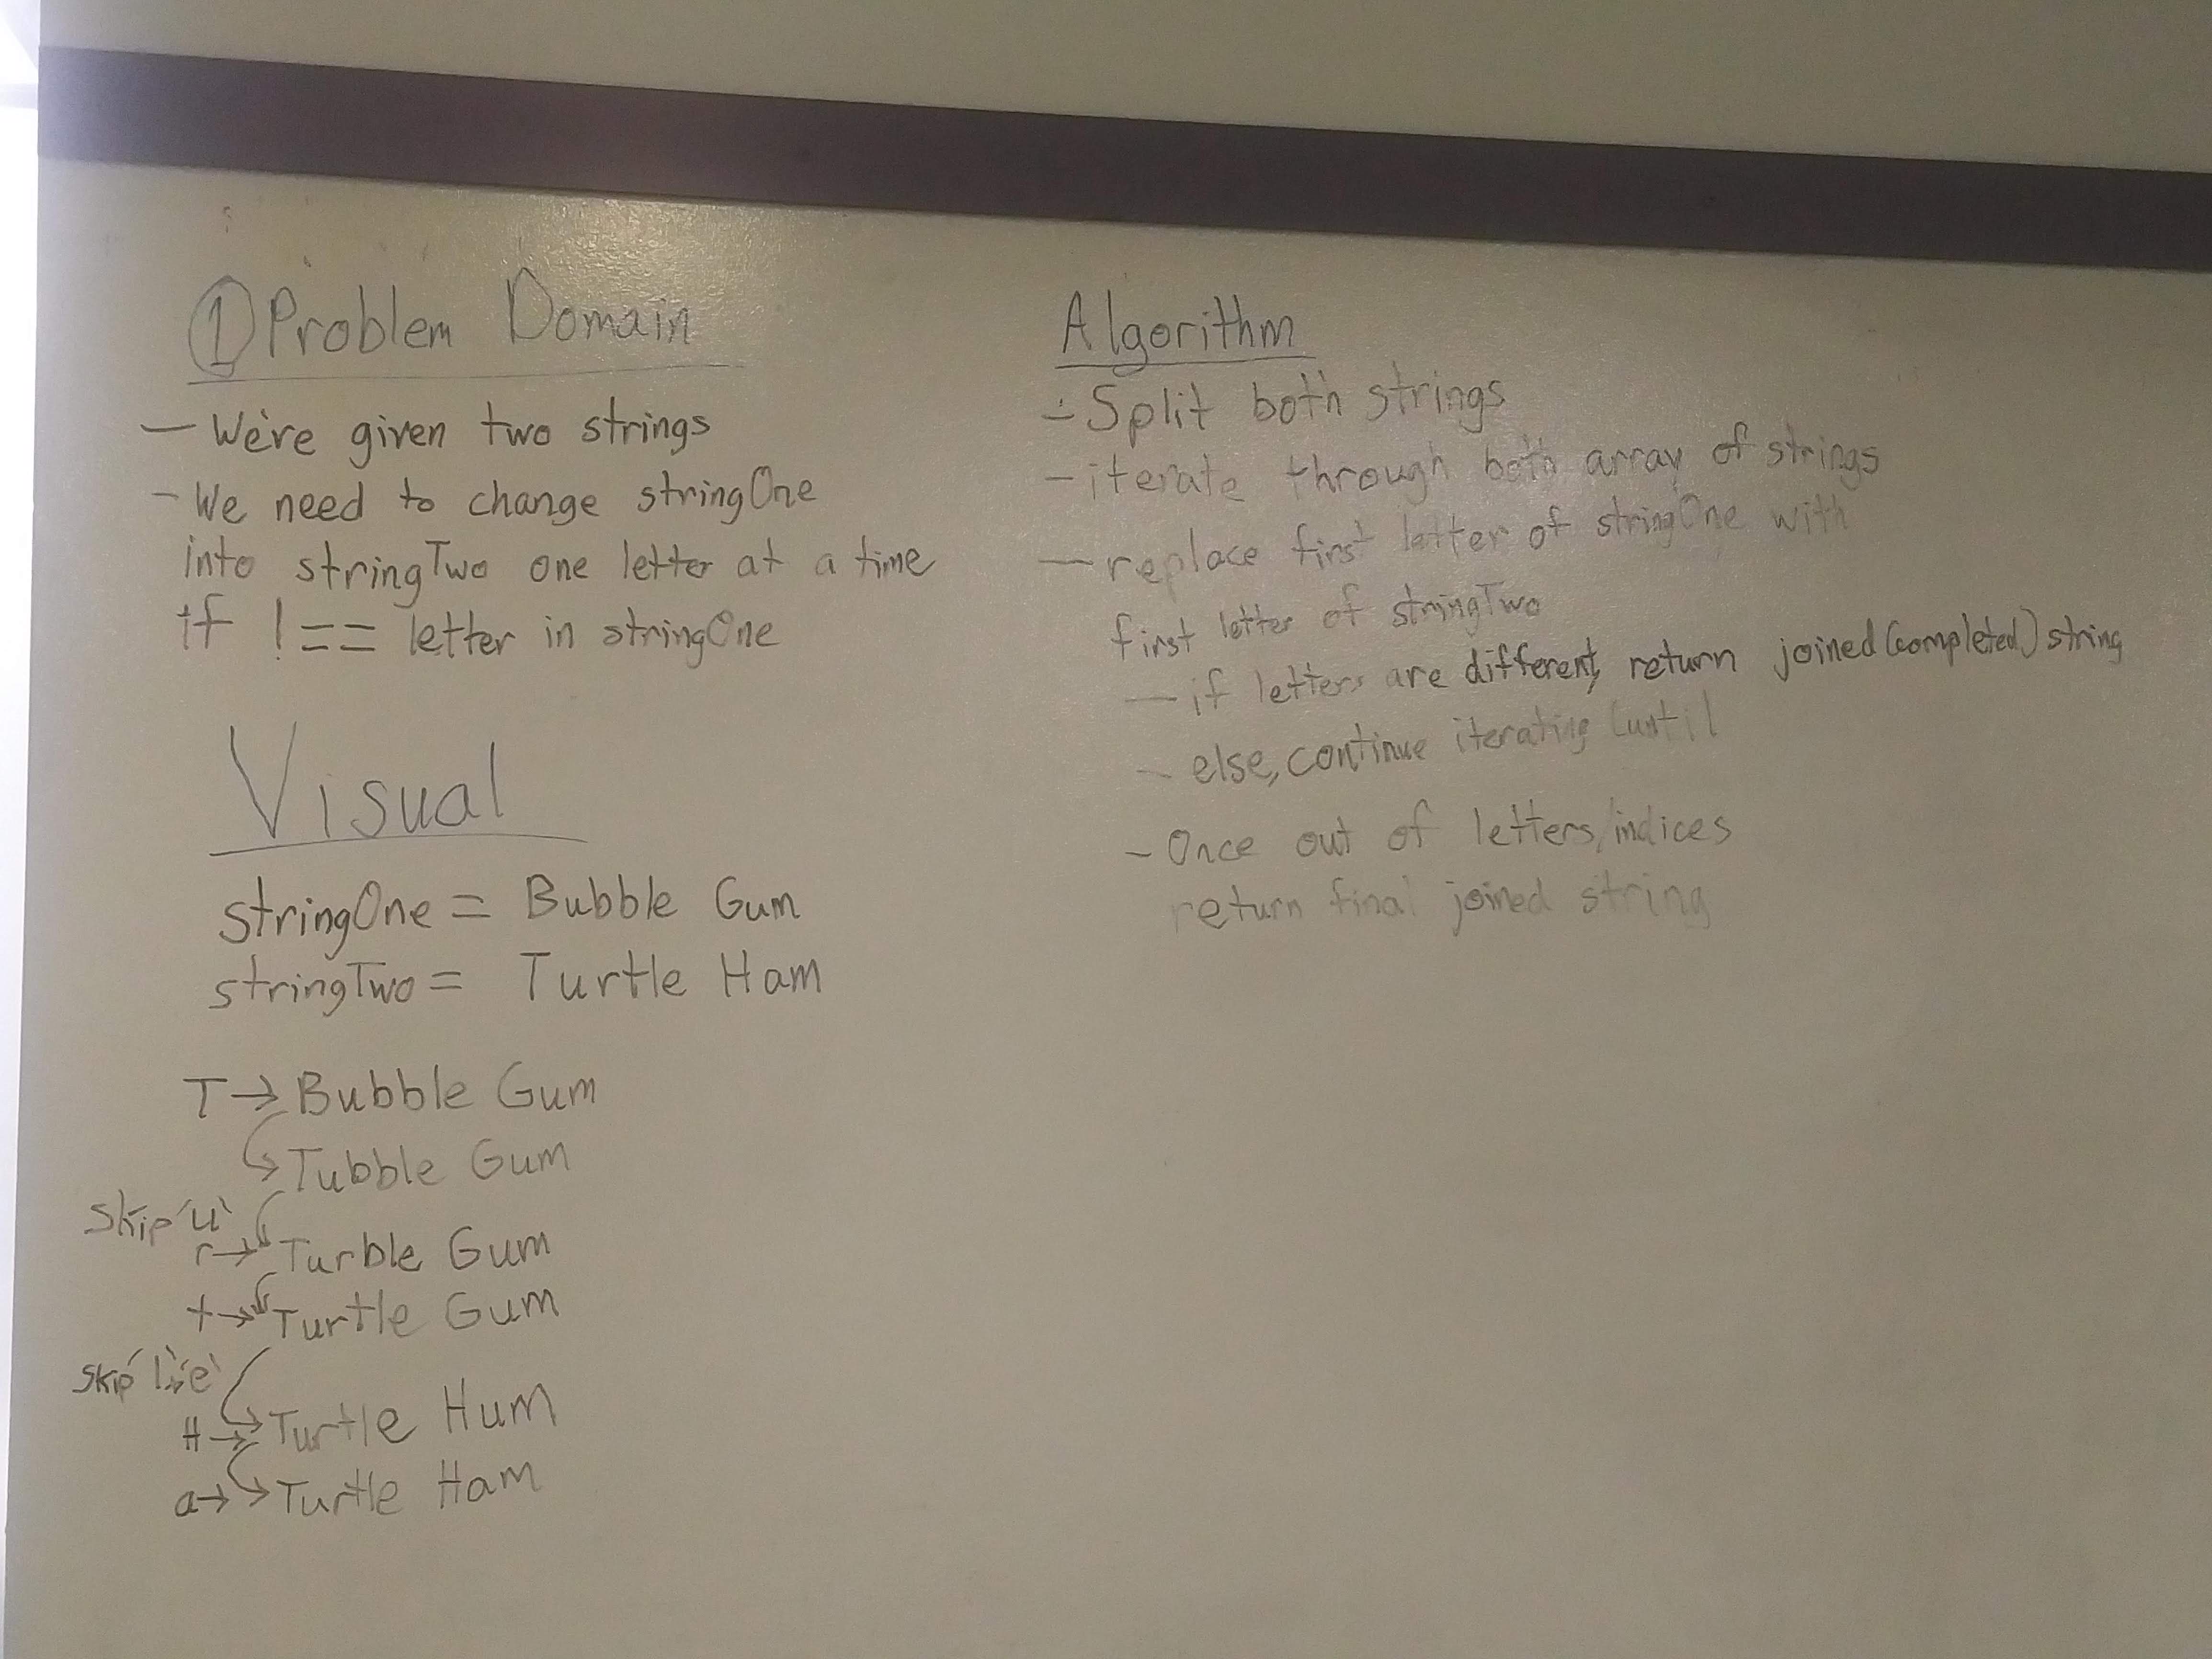 ① Problem Domain
— We're given two strings
- We need to change stringOne
into stringTwo one letter at a time
if !== letter in stringOne
Visual
stringOne = Bubble Gum
stringTwo = Turtle Ham
T → Bubble Gum
Tubble Gum
skip 'u'
r → Turble Gum
t → Turtle Gum
skip 'l', 'e'
H → Turtle Hum
a → Turtle Ham
Algorithm
- Split both strings
- iterate through both array of strings
— replace first letter of stringOne with
first letter of stringTwo
— if letters are different, return joined (completed) string
- else, continue iterating (until
- Once out of letters/indices
return final joined string